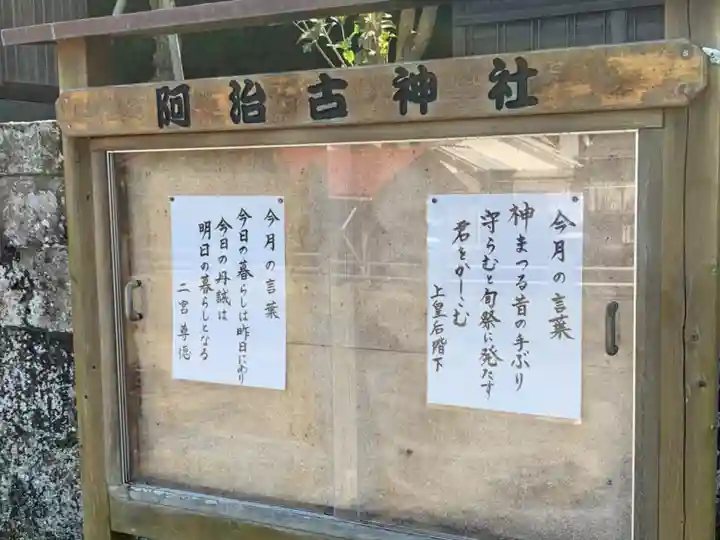 阿治古神社
今月の言葉
神まつる昔の手ぶり
守らむと旬祭に発たす
君をかしこむ
上皇后陛下
今月の言葉
今日の暮らしは昨日にあり
今日の丹誠は
明日の暮らしとなる
二宮尊徳